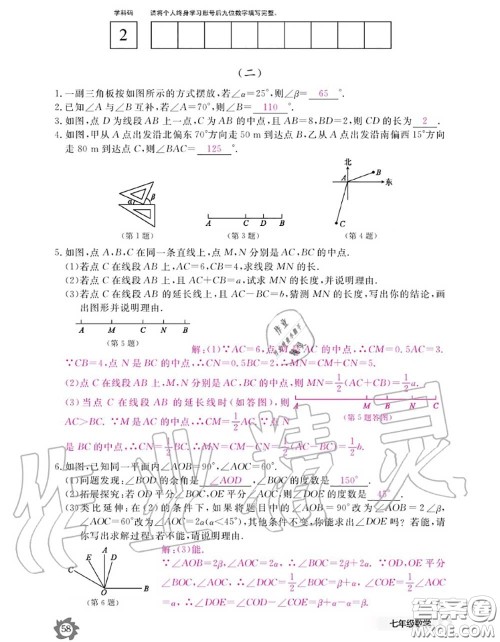 学科码 请将个人终身学习形号后九位数字填写完整。
2
（二）
1.一副三角板按如图所示的方式摆放,若∠α=25°,则∠β= 65 °.
2.已知∠A 与∠B 互补,若∠A=70°,则∠B= 110 °.
3.如图,点 D 为线段 AB 上一点,C 为 AB 的中点,且 AB=8,BD=2,则 CD 的长为 2 .
4.如图,甲从 A 点出发沿北偏东 70°方向走 50 m 到达点 B,乙从 A 点出发沿南偏西 15°方向
走 80 m 到达点 C,则∠BAC= 125 °.
北
B
A 东
C
α β
A C D B
(第 1 题) (第 3 题) (第 4 题)
5.如图,点 A,B,C 在同一条直线上,点 M,N 分别是 AC,BC 的中点.
(1)若点 C 在线段 AB 上,AC=6,CB=4,求线段 MN 的长.
(2)若点 C 在线段 AB 上,且 AC+CB=a,试求 MN 的长度,并说明理由.
(3)若点 C 在线段 AB 的延长线上,且 AC−BC=b,猜测 MN 的长度,写出你的结论,画
出图形并说明理由.
A M C N B
(第 5 题)
解:(1)∵AC=6,点 M 是 AC 的中点,∴CM=0.5AC=3.
∵CB=4,点 N 是 BC 的中点,∴CN=0.5BC=2,∴MN=CM+CN=5.
(2)点 C 在线段 AB 上,M,N 分别是 AC,BC 的中点,则 MN=1/2(AC+BC)=1/2a.
(3)当点 C 在线段 AB 的延长线时(如答图),则
A M B N C
(第 5 题答图)
AC>BC. ∵M 是 AC 的中点,∴CM=1/2AC. ∵点 N
是 BC 的中点,∴CN=1/2BC,∴MN=CM−CN=1/2(AC−BC)=1/2b.
6.如图,已知同一平面内∠AOB=90°,∠AOC=60°.
(1)问题发现:∠BOD 的余角是 ∠AOD ,∠BOC 的度数是 150° .
(2)拓展探究:若 OD 平分∠BOC,OE 平分∠AOC,则∠DOE 的度数是 45° .
(3)类比延伸:在(2)的条件下,如果将题目中的∠AOB=90°改为∠AOB=2∠β,
∠AOC=60°改为∠AOC=2α(α<45°),其他条件不变,你能求出∠DOE 吗? 若能,请
你写出求解过程;若不能,请说明理由.
A D
E
C O B
(第 6 题)
解:(3)能.
∵∠AOB=2β,∠AOC=2α,∴∠BOC=2β+2α. ∵OD,OE 平分
∠BOC,∠AOC,∴∠DOC=1/2∠BOC=β+α,∠COE=1/2
∠AOC=α,∴∠DOE=∠COD−∠COE=β+α−α=β.
58
七年级数学
作业精灵
答案圈